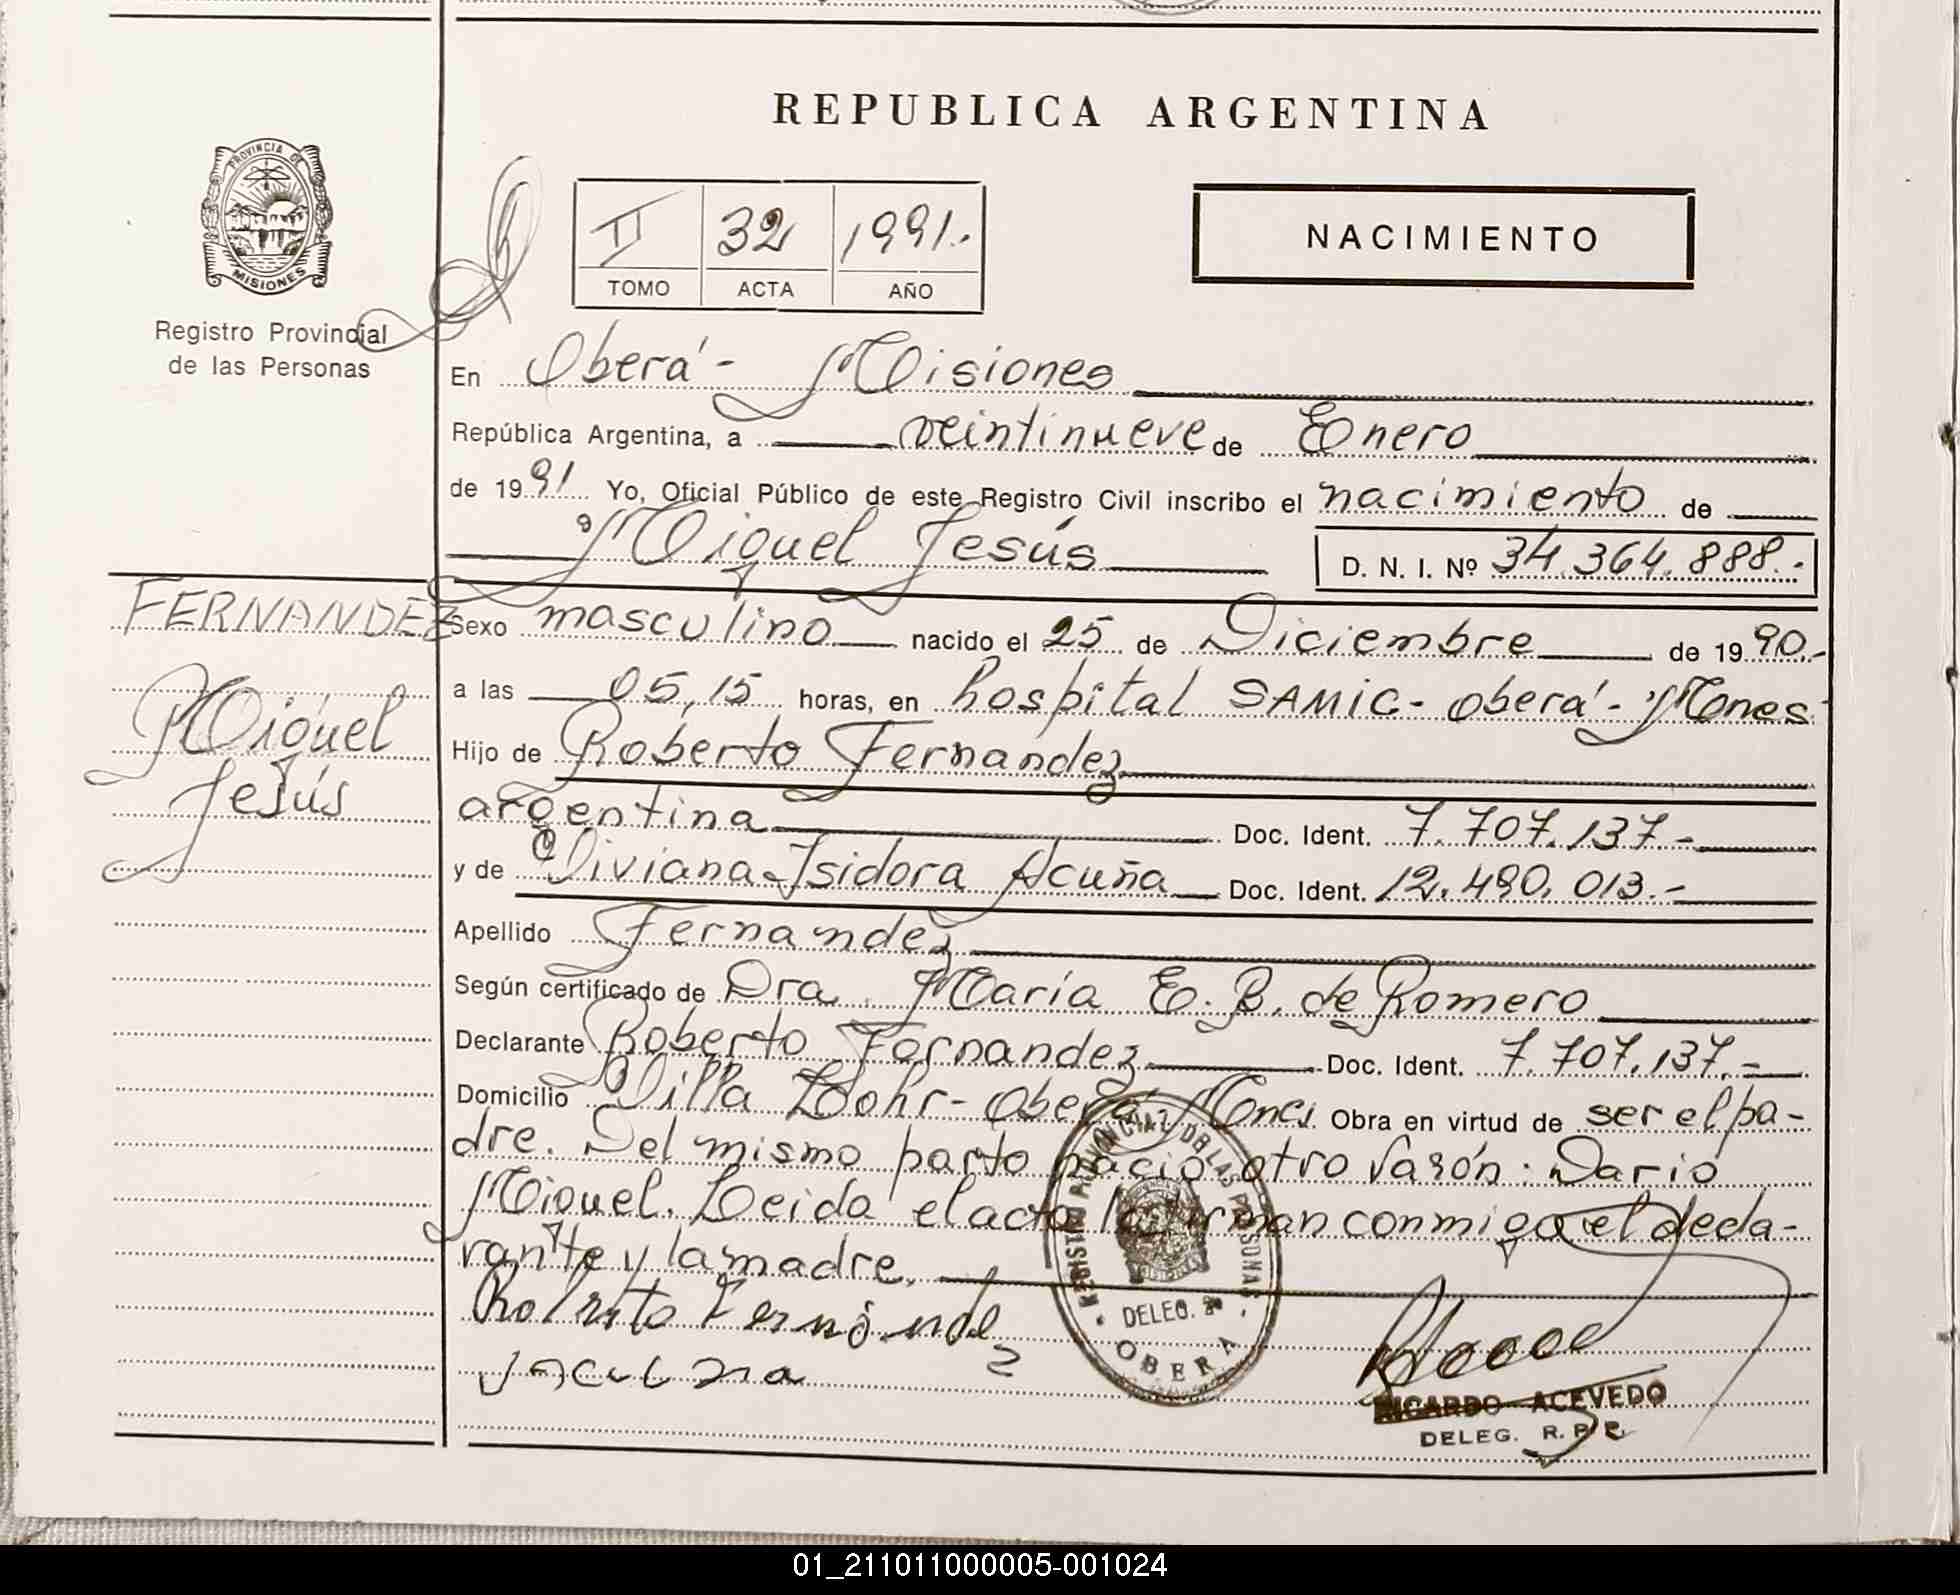 REPUBLICA ARGENTINA
PROVINCIA DE
MISIONES
Registro Provincial
de las Personas
II 32 1991.-
TOMO ACTA AÑO
NACIMIENTO
En Oberá - Misiones
República Argentina, a veintinueve de Enero
de 1991 Yo, Oficial Público de este Registro Civil inscribo el nacimiento de
Miguel Jesús D. N. I. Nº 34.364.888.-
FERNANDEZ
Miguel
Jesús
Sexo masculino nacido el 25 de Diciembre de 1990.-
a las 05,15 horas, en hospital SAMIC - Oberá - Mones
Hijo de Roberto Fernandez
argentina Doc. Ident. 7.707.137.-
y de Viviana Isidora Acuña Doc. Ident. 12.490.013.-
Apellido Fernandez
Según certificado de Dra. María E. B. de Romero
Declarante Roberto Fernandez Doc. Ident. 7.707.137.-
Domicilio Villa Lohr - Oberá - Mones Obra en virtud de ser el pa-
dre. Del mismo parto nació otro varón: Dario
Miguel. Leida el acta la firman conmigo el decla-
rante y la madre.
Roberto Fernández
REGISTRO PROVINCIAL DE LAS PERSONAS
DELEG.
OBERA
RICARDO ACEVEDO
DELEG. R. P. P.
01_211011000005-001024